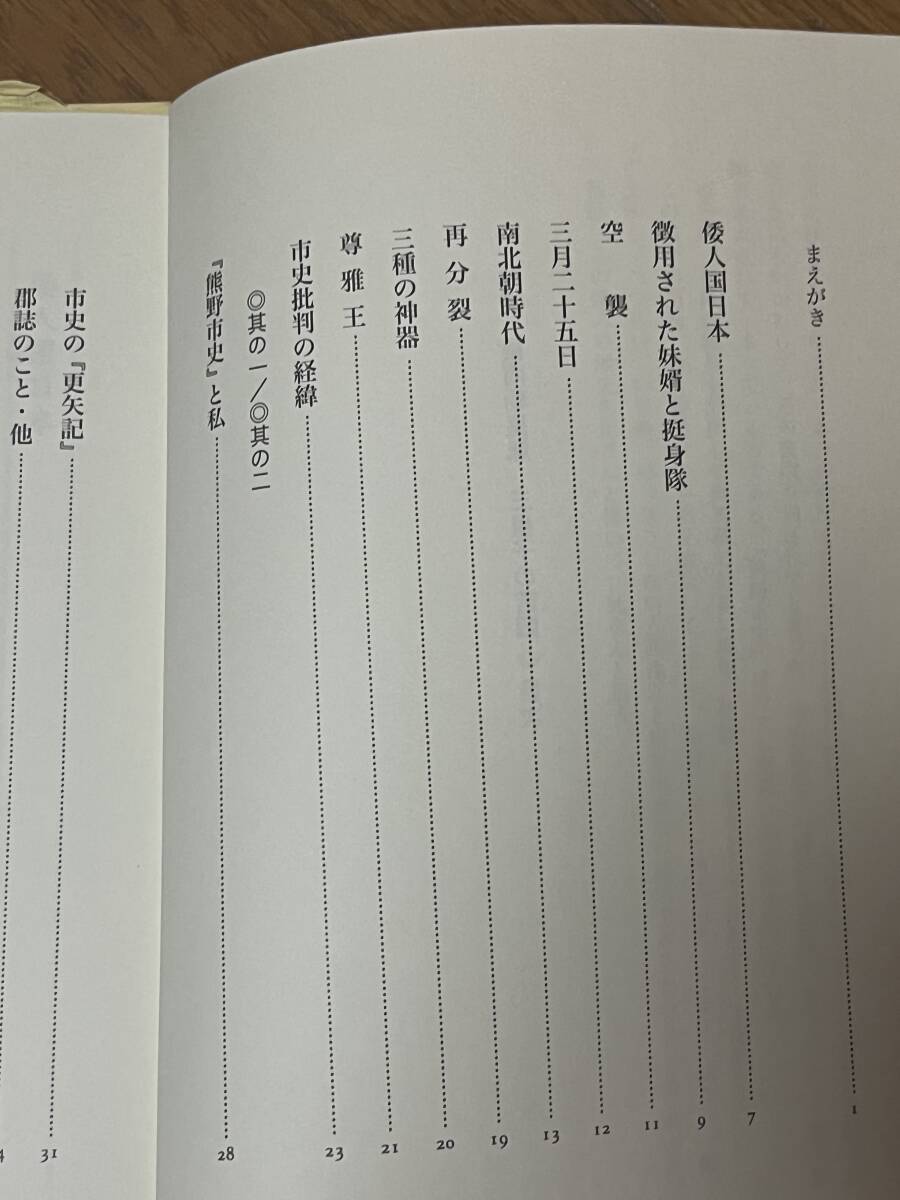 まえがき……1
倭人国日本……7
徴用された妹婿と挺身隊……9
空　襲……11
三月二十五日……12
南北朝時代……13
再分裂……19
三種の神器……20
尊雅王……21
市史批判の経緯……23
◎其の一／◎其の二
『熊野市史』と私……28
市史の『更矢記』……31
郡誌のこと・他……